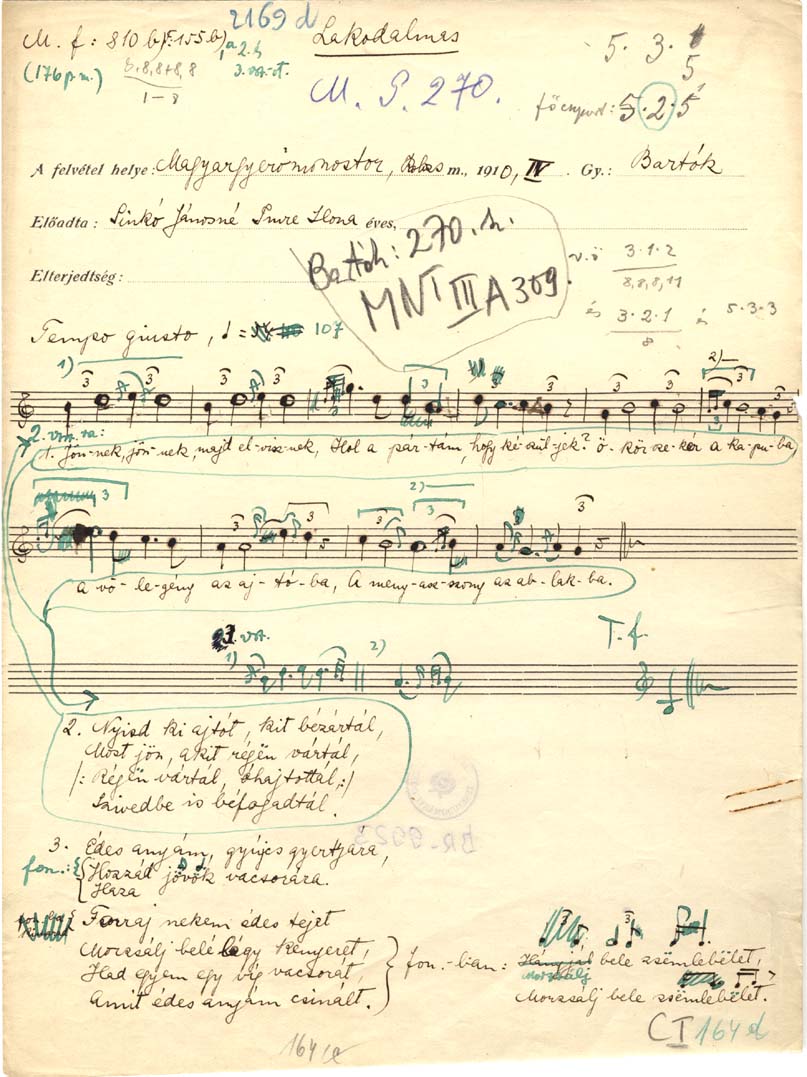 2169 d
M. f: 810 b)
Lakodalmas
5. 3. 1
5
(176 p.m.) 8.8,8+8,8
1–8
M. S. 270.
5.2.5
A felvétel helye: Magyargyerőmonostor, Kolozs m., 1910, IV. Gy.: Bartók
Előadta: Sinkó Jánosné Imre Ilona éves,
Bartók: 270. h.
MNT III A 309.
v.ö 3.1.2
8,8,8,11
Elterjedtség:
és 3.2.1
8
és 5.3.3
Tempo giusto, ♩ = 107
1)
3 3 3 3 3 3 2) 3
2. vsz. ra:
1. Jön-nek, jön-nek, majd el-visz-nek, Hol a pár-tám, hogy ké-szül-jek? ö-kör sze-kér a ka-pu-ba
3 3 3 2) 3 3 3
a vő-le-gény az aj-tó-ba, A meny-asz-szony az ab-lak-ba.
3. vsz.
1) 2)
T. f.
2. Nyisd ki ajtót, kit bézártál,
Most jön, akit régën vártál,
/: Régën vártál, óhajtottál, :/
Szivedbe is béfogadtál.
BR-9923
3. Édes anyám, gyújcs gyertyára,
fon.: { Hozzád jövök vacsorára.
Haza
Forraj nekem édes tejet
Morzsálj belé lágy kenyeret,
Had gyem egy víg vacsorát,
Amit édes anyám csinált.
fon.-ban: bele zsëmlebëlet,
Morzsálj
Morzsálj bele zsëmlebëlet.
C I 164 d
164 a